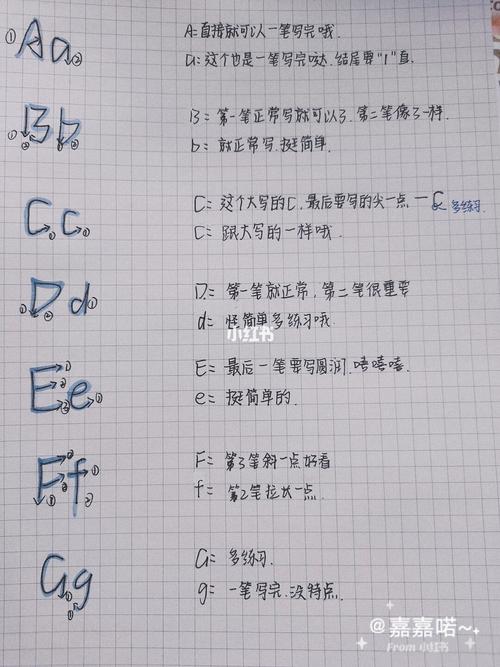 Aa
A: 直接就可以一笔写完哦.
a: 这个也是一笔写完哒, 结尾要"l"直.
Bb
B= 第一笔正常写就可以了, 第二笔像了一样.
b= 就正常写, 挺简单.
Cc
C= 这个大写的C, 最后要写的尖一点 — C 多练习.
C= 跟大写的一样哦.
Dd
D= 第一笔就正常, 第二笔很重要
d= 怪简单多练习哦.
小红书
Ee
E= 最后一笔要写圆润, 嘻嘻嘻.
e= 挺简单的.
Ff
F= 第3笔斜一点好看
f= 第2笔拉长一点.
Gg
G= 多练习.
g= 一笔写完, 没特点.
@嘉嘉喏~
From 小红书